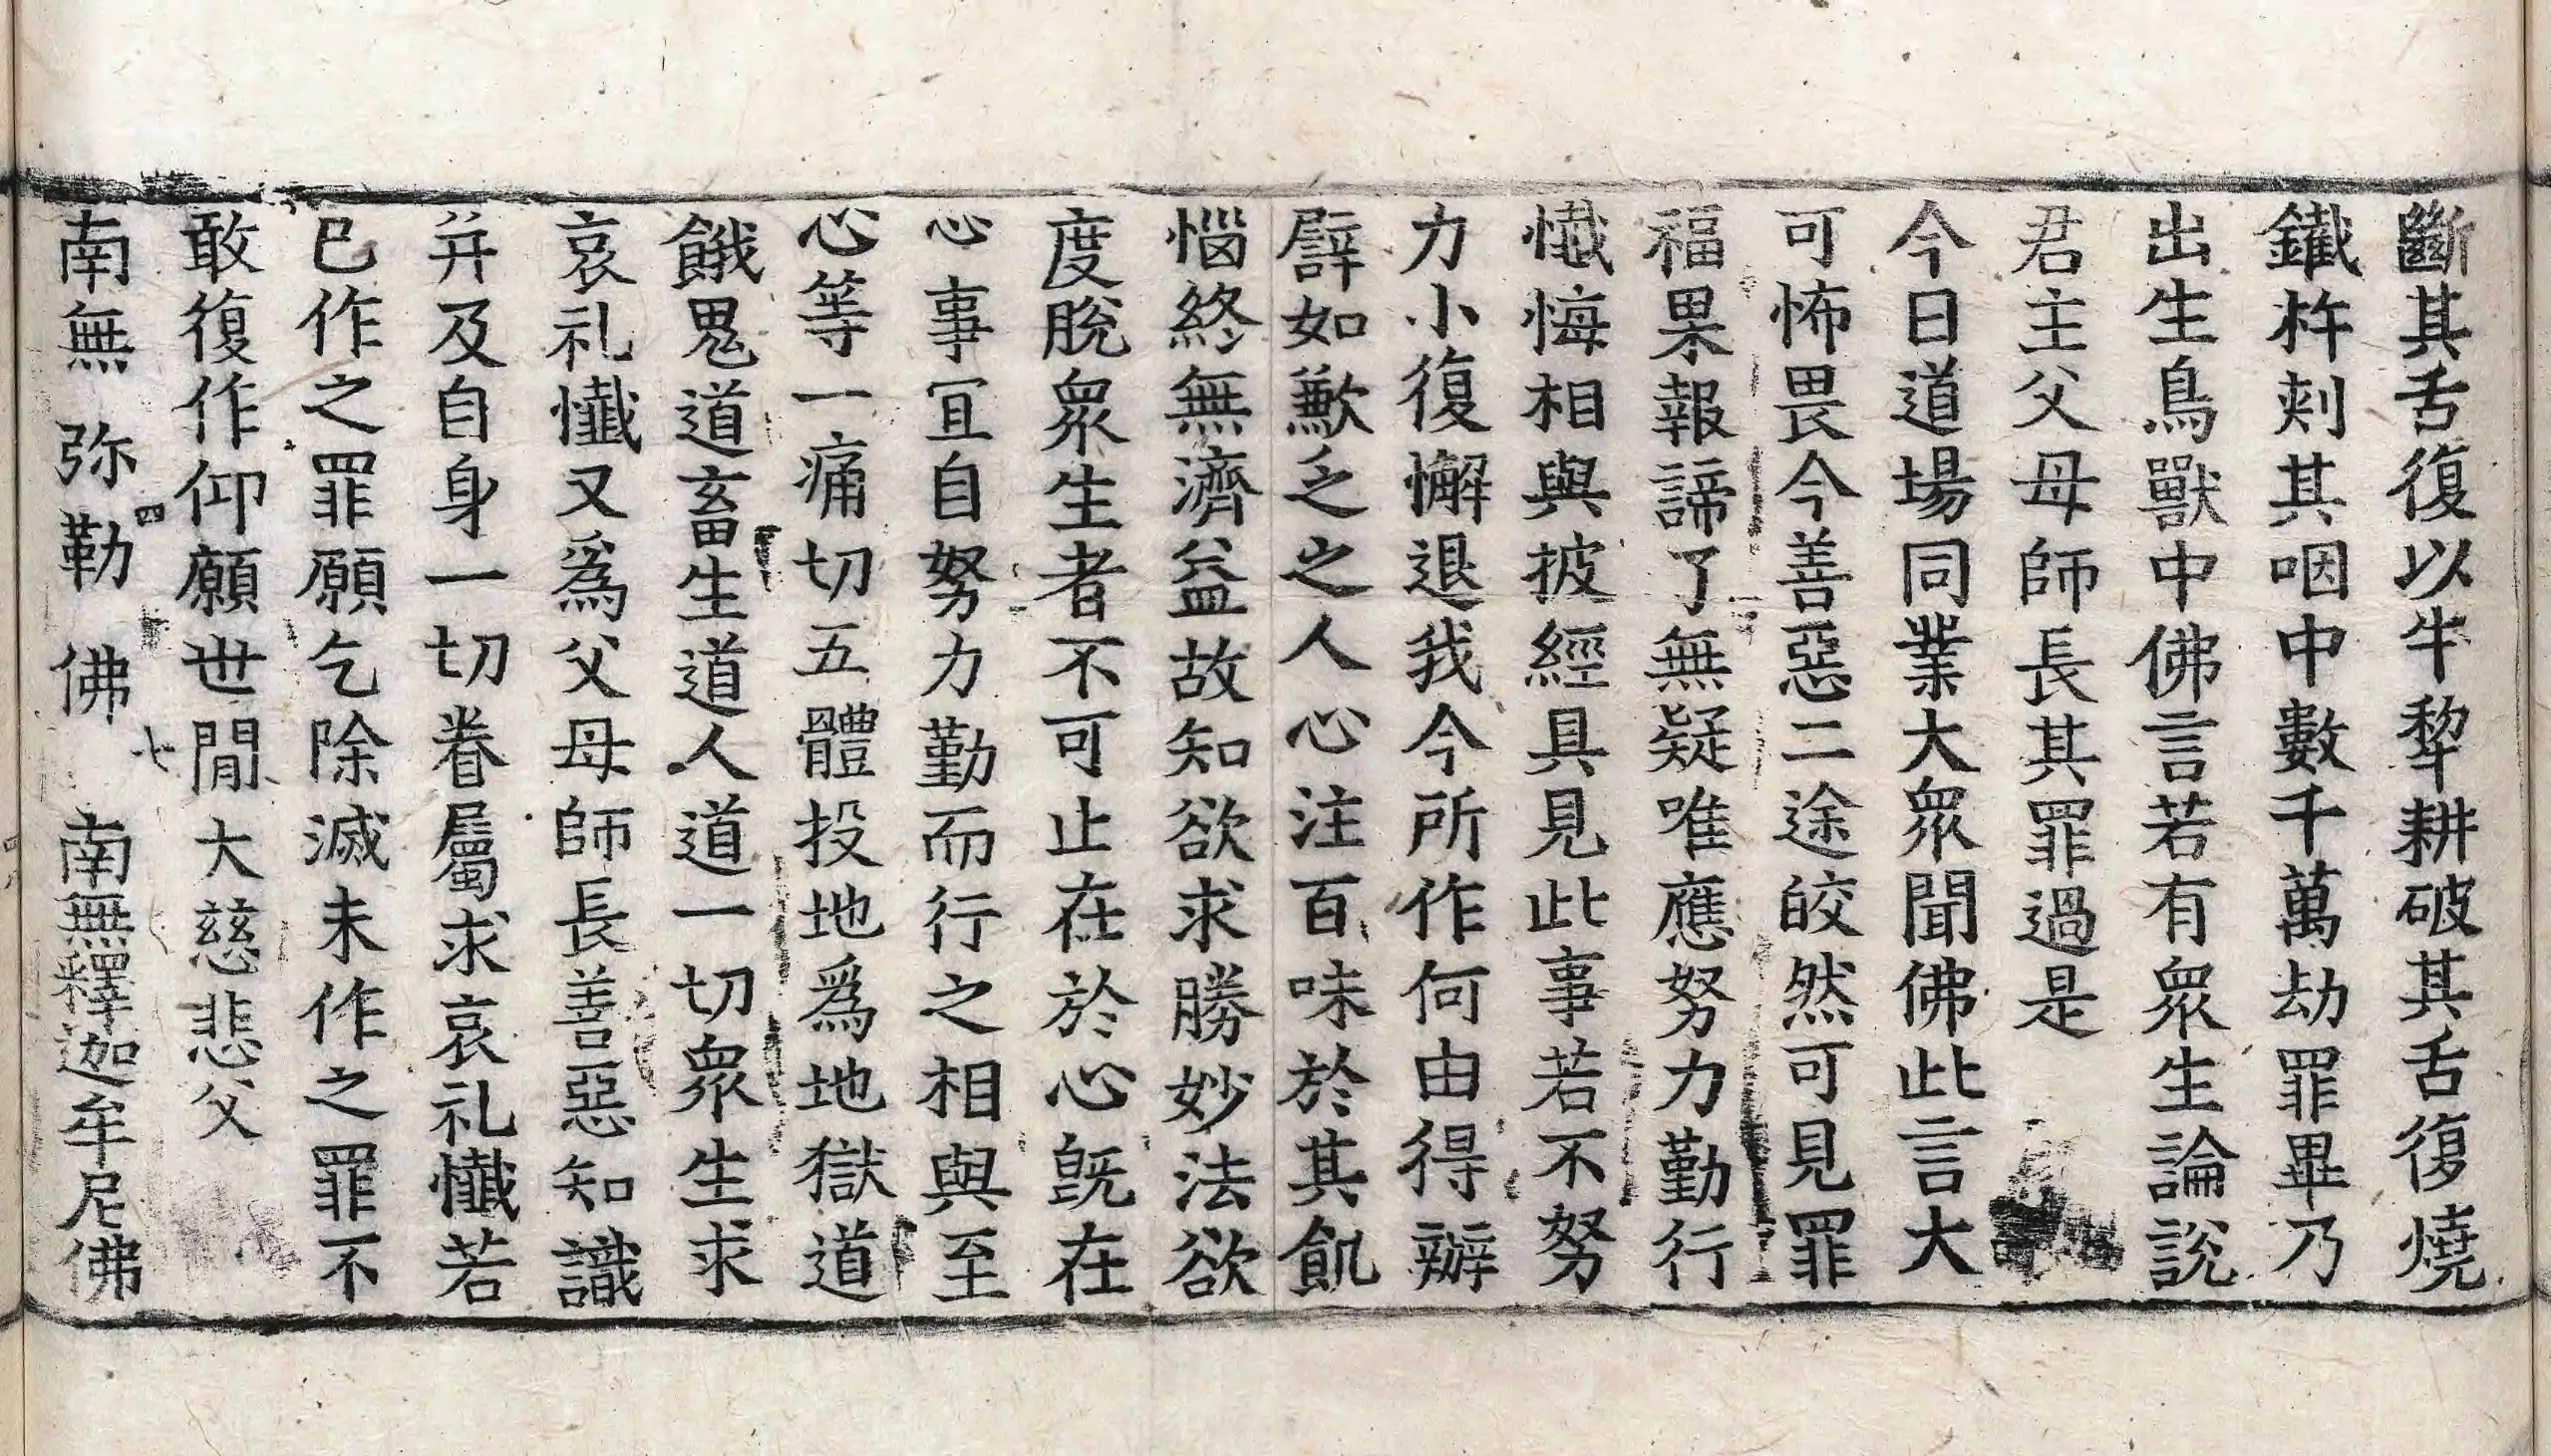 斷其舌復以牛犂耕破其舌復燒
鐵杵刾其咽中數千萬劫罪畢乃
出生鳥獸中佛言若有衆生論說
君主父母師長其罪過是
今日道場同業大衆聞佛此言大
可怖畏今善惡二途皎然可見罪
福果報諦了無疑唯應努力勤行
懺悔相與披經具見此事若不努
力小復懈退我今所作何由得辦
譬如歉乏之人心注百味於其飢
惱終無濟益故知欲求勝妙法欲
度脫衆生者不可止在於心旣在
心事冝自努力勤而行之相與至
心等一痛切五體投地爲地獄道
餓鬼道畜生道人道一切衆生求
哀礼懺又爲父母師長善惡知識
并及自身一切眷屬求哀礼懺若
已作之罪願乞除滅未作之罪不
敢復作仰願世閒大慈悲父
四 七
南無弥勒佛 南無釋迦牟尼佛